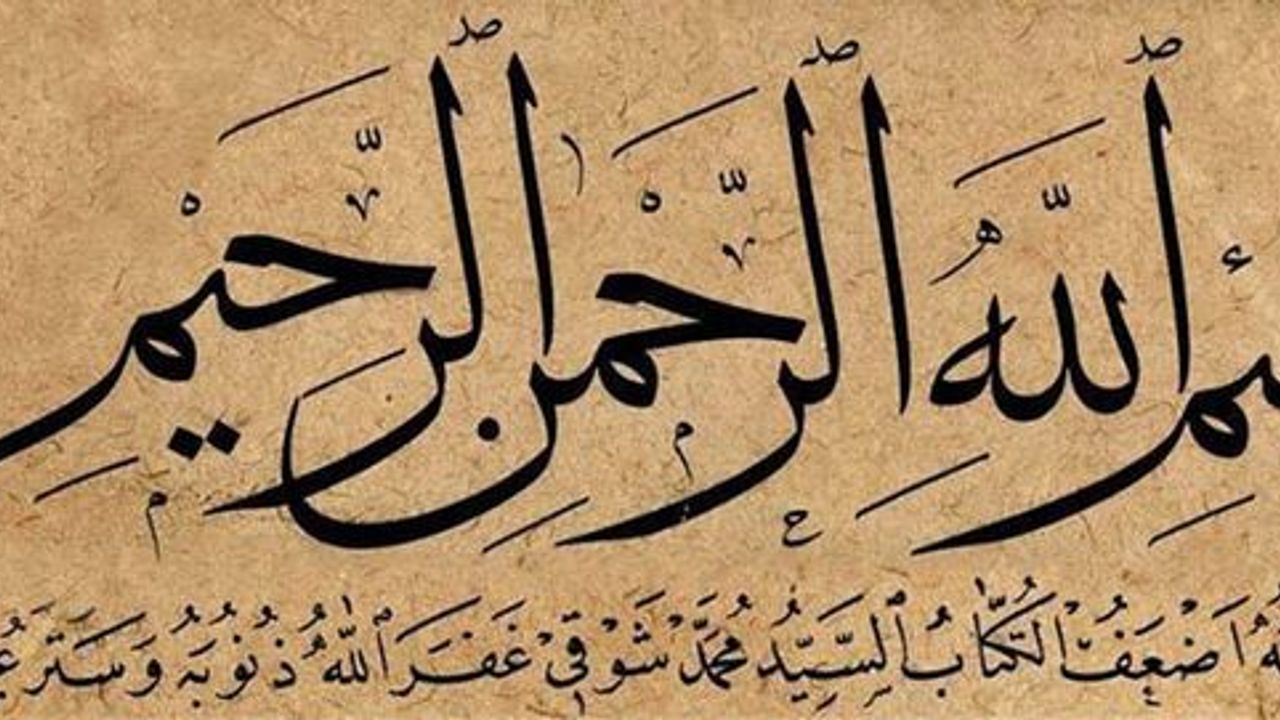 بسم ٱللّٰهِ ٱلرَّحْمٰنِ ٱلرَّحِيْمِ
اَضْعَفُ ٱلْكُتَّابِ ٱلسَّيِّدُ مُحَمَّدْ شَوْقِي غَفَرَ ٱللّٰهُ ذُنُوبَهُ وَسَتَرَ